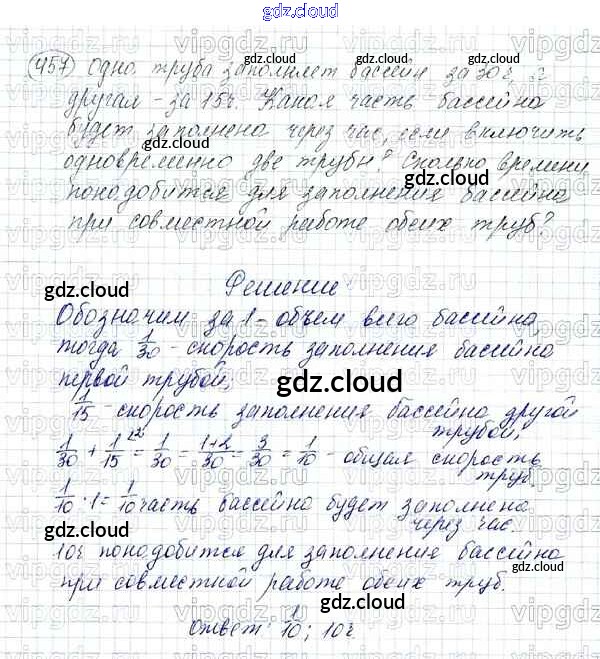 gdz.cloud
457 Одна труба заполняет бассейн за 30 г, а
другая - за 15г. Какая часть бассейна
будет заполнена через час, если включить
одновременно две трубы? Сколько времени
понадобится для заполнения бассейна
при совместной работе обеих труб?
Решение
Обозначим за 1 - объем всего бассейна,
тогда 1/30 - скорость заполнения бассейна
первой трубой;
1/15 - скорость заполнения бассейна другой
трубой;
1/30 + 1/15 = 1/30 = (1+2)/30 = 3/30 = 1/10 - общая скорость
труб.
1/10 · 1 = 1/10 часть бассейна будет заполнена
через час.
10г понадобится для заполнения бассейна
при совместной работе обеих труб.
Ответ: 1/10; 10г.